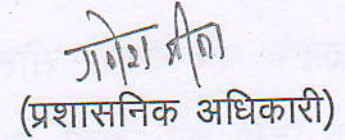 गणेश मीना
(प्रशासनिक अधिकारी)